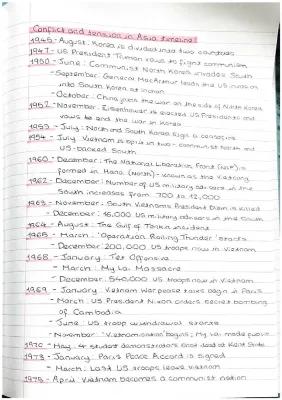 Conflict and tension in Asia timeline
1945 - August: Korea is divided into two countries
1947 - US President Truman vows to fight communism
1950 - June: Communist North Korea invades South
- September: General MacArthur leads the US invasion
into South Korea at Inchon
- October: China joins the war on the side of North Korea
1952 - November: Eisenhower is elected US President and
vows to end the war in Korea
1953 - July: North and South Korea sign a ceasefire
1954 - July: Vietnam is split in two - communist North and
US-backed South
1960 - December: The National Liberation Front (NLF) is
formed in Hanoi (North) - known as the Vietcong
1962 - December: Number of US military advisors in the
South increases from 700 to 12,000
1963 - November: South Vietnam's President Diem is killed
- December: 16,000 US military advisors in the South
1964 - August: The Gulf of Tonkin incident
1965 - March: 'Operation Rolling Thunder' starts
- December: 200,000 US troops now in Vietnam
1968 - January: Tet Offensive
- March: My Lai Massacre
- December: 540,000 US troops now in Vietnam
1969 - January: Vietnam War peace talks begin in Paris
- March: US President Nixon orders secret bombing
of Cambodia
- June: US troop withdrawal starts
- November: 'Vietnamisation' begins; My Lai made public
1970 - May: 4 student demonstrators shot dead at Kent State
1973 - January: Paris Peace Accord is signed
- March: Last US troops leave Vietnam
1975 - April: Vietnam becomes a communist nation